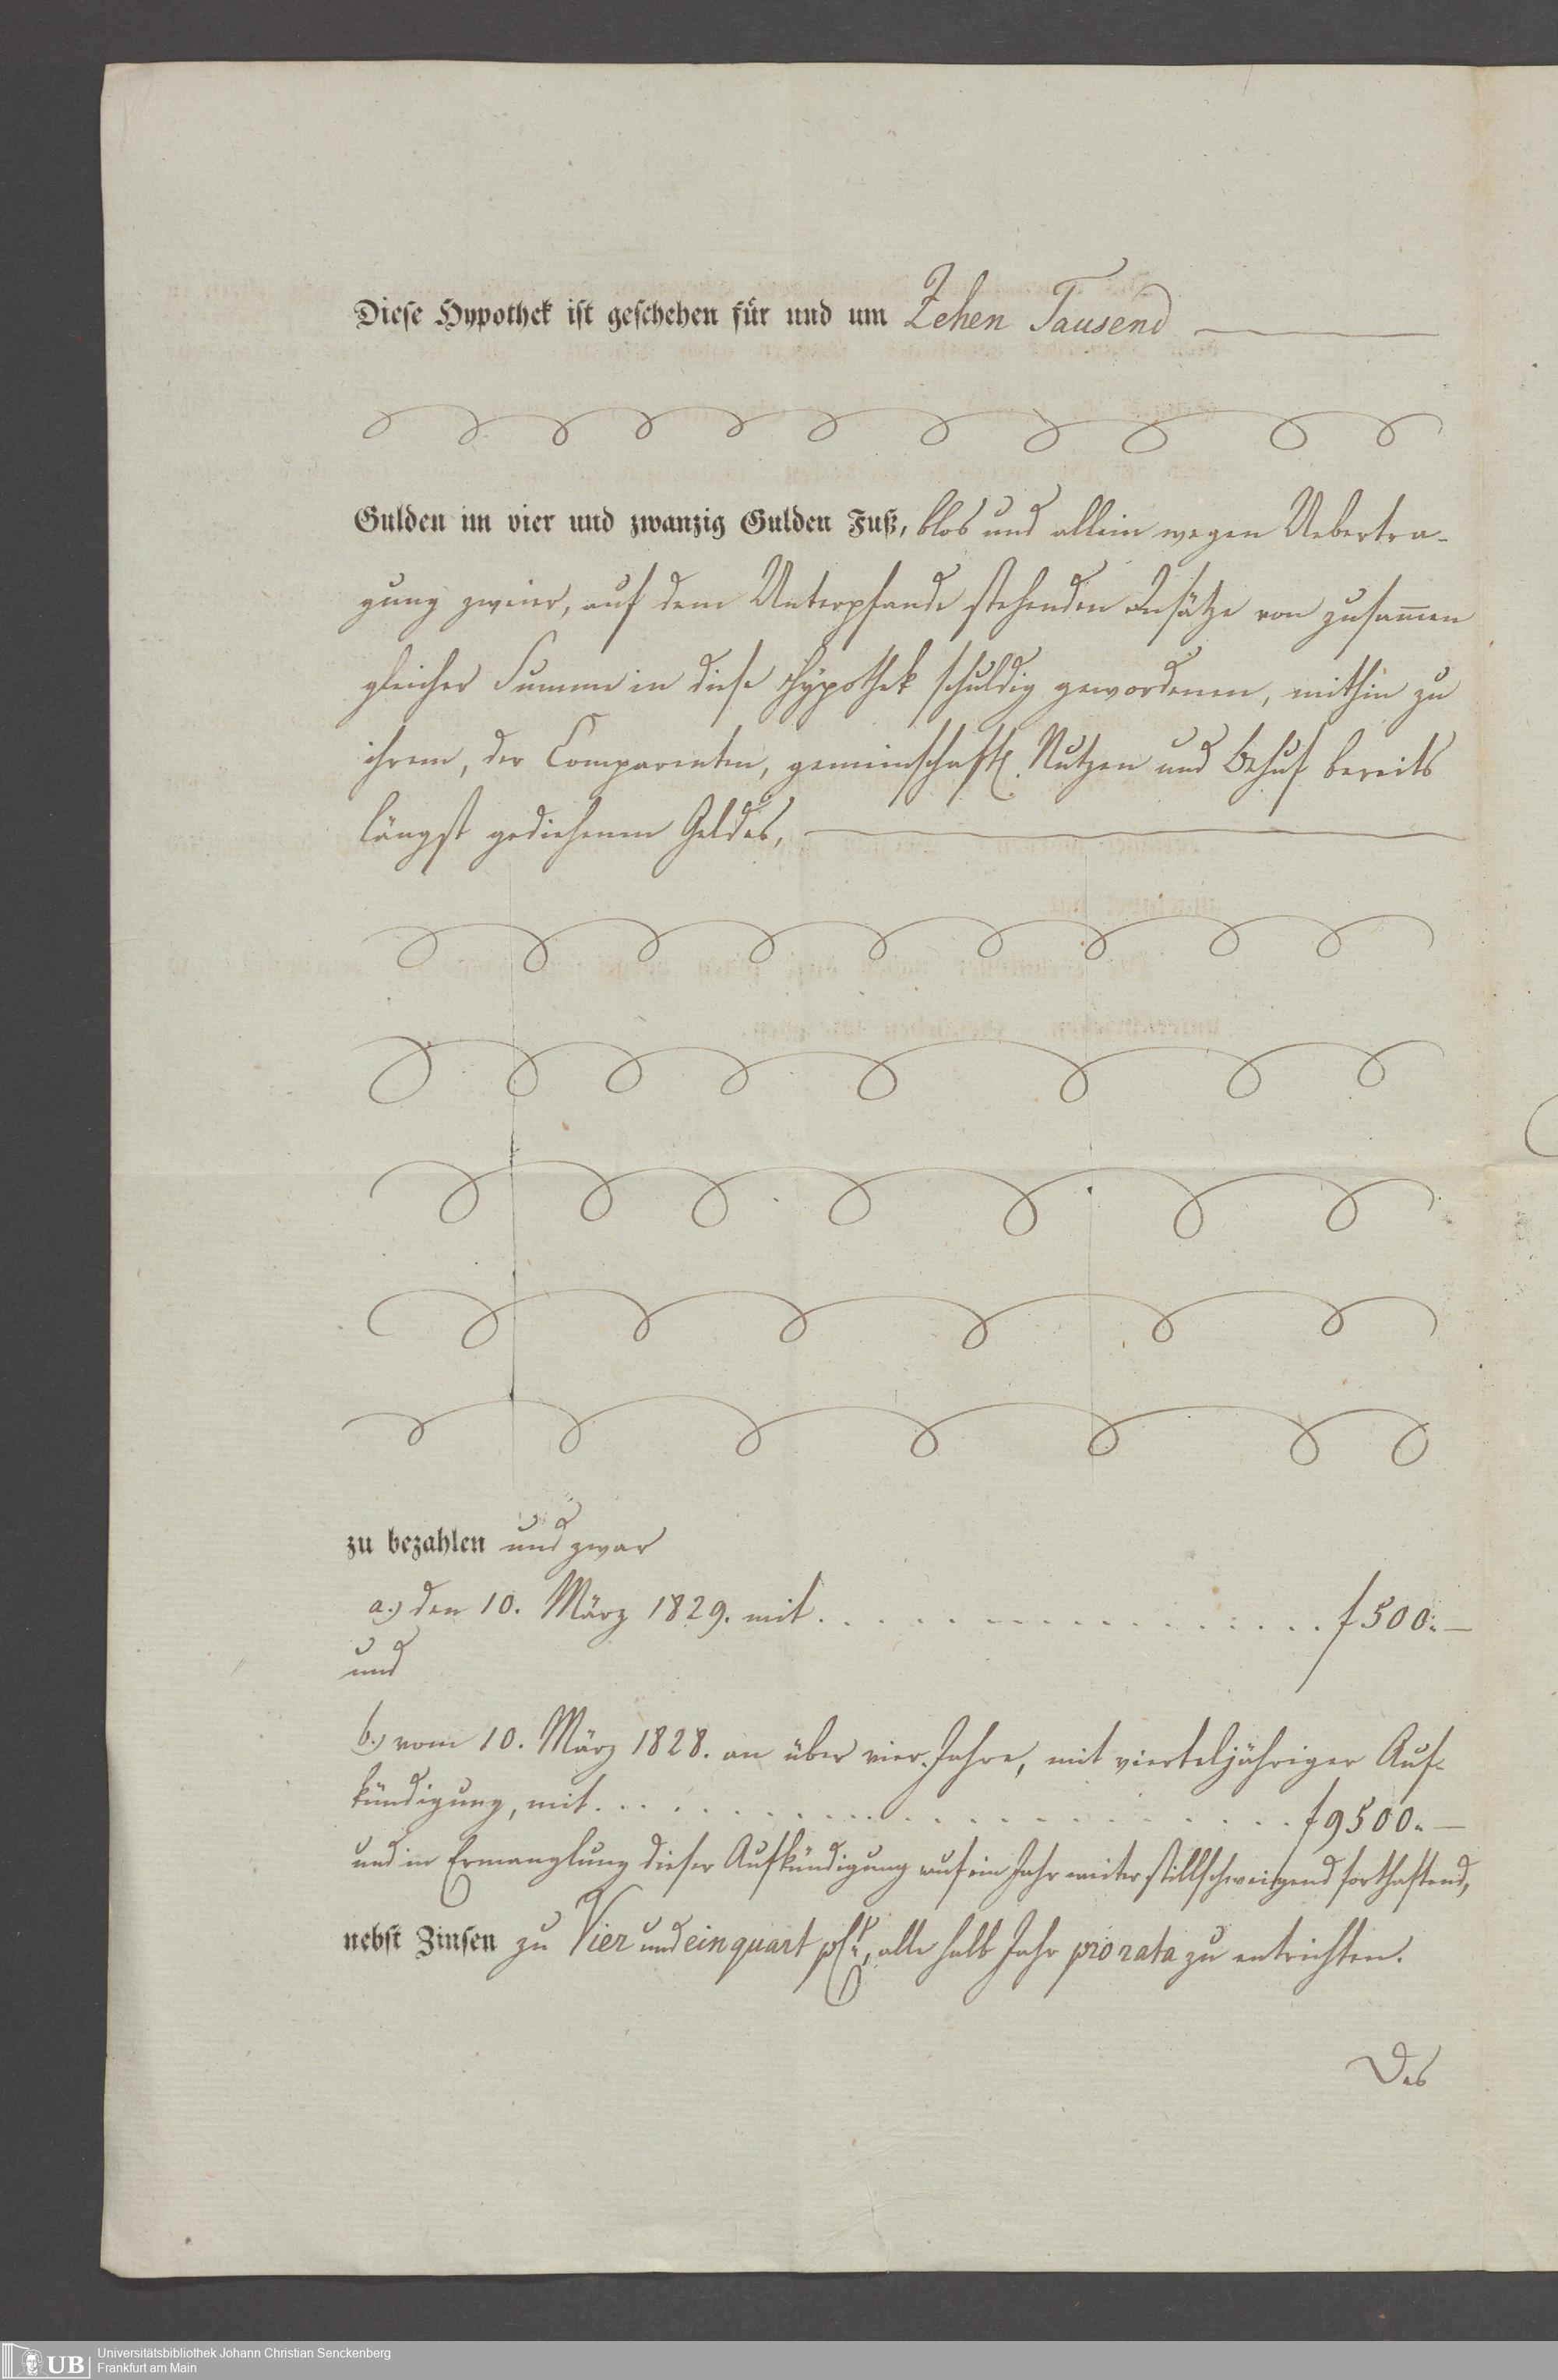 Diese Hypothek ist geschehen für und um Zehen Tausend
Gulden im vier und zwanzig Gulden Fuß, blos und allein wegen Uebertra-
gung zweier, auf dem Unterpfande stehenden Insätze von zusam̄en
gleicher Summe in diese Hypothek schuldig gewordenen, mithin zu
ihrem, der Comparenten, gemeinschaftl. Nutzen und Behuf bereits
längst gediehenen Geldes,
zu bezahlen und zwar
a.) den 10. März 1829. mit . . . . . . . . . . . . . . . . . f 500.—
und
b.) vom 10. März 1828. an über vier Jahre, mit vierteljähriger Auf-
kündigung, mit . . . . . . . . . . . . . . . . . . . . . f 9500.—
und in Ermanglung dieser Aufkündigung auf ein Jahr weiter stillschweigend forthaftend,
nebst Zinsen zu Vier und ein quart pCt., alle halb Jahr pro rata zu entrichten.
Des
UB Universitätsbibliothek Johann Christian Senckenberg
Frankfurt am Main